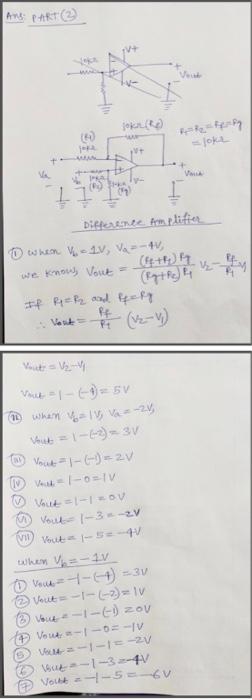 Ans: PART (2)
10kΩ
V+
+
V-
Vout
10kΩ (Rf)
(R1)
10kΩ
R1=R2=Rf=Rg
=10kΩ
V+
+
Va
Vb
10kΩ
(R2)
10kΩ
(Rg)
V-
Vout
Difference Amplifier
(i) when Vb=1V, Va=-4V,
we know, Vout = (Rf+R1) Rg / (Rg+R2) R1 V2 - Rf/R1 V1
If R1=R2 and Rf=Rg
∴ Vout = Rf/R1 (V2-V1)
Vout = V2-V1
Vout = 1-(-4) = 5V
(ii) when Vb=1V, Va=-2V,
Vout = 1-(-2) = 3V
(iii) Vout = 1-(-1) = 2V
(iv) Vout = 1-0 = 1V
(v) Vout = 1-1 = 0V
(vi) Vout = 1-3 = -2V
(vii) Vout = 1-5 = -4V
when Vb = -1V
(1) Vout = -1-(-4) = 3V
(2) Vout = -1-(-2) = 1V
(3) Vout = -1-(-1) = 0V
(4) Vout = -1-0 = -1V
(5) Vout = -1-1 = -2V
(6) Vout = -1-3 = -4V
(7) Vout = -1-5 = -6V